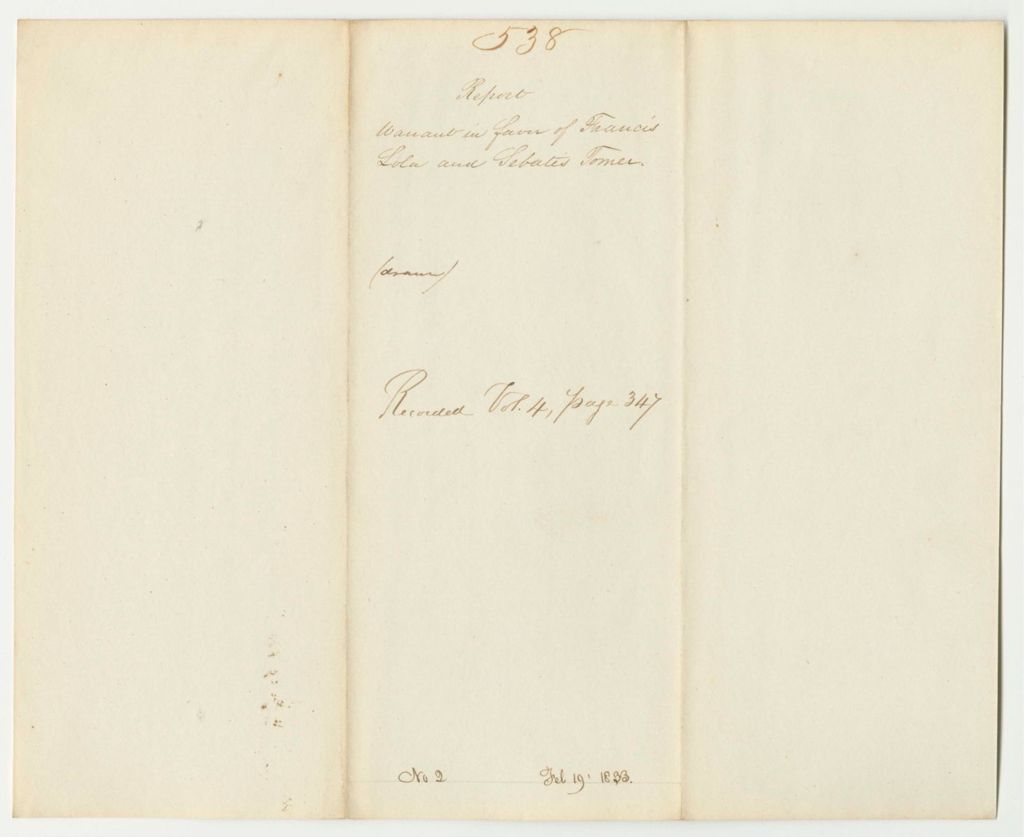 538
Report
Warrant in favor of Francis
Lola and Sebatis Tomer.
(drawn)
Recorded Vol. 4, page 347
No 2 Feb 19' 1833.